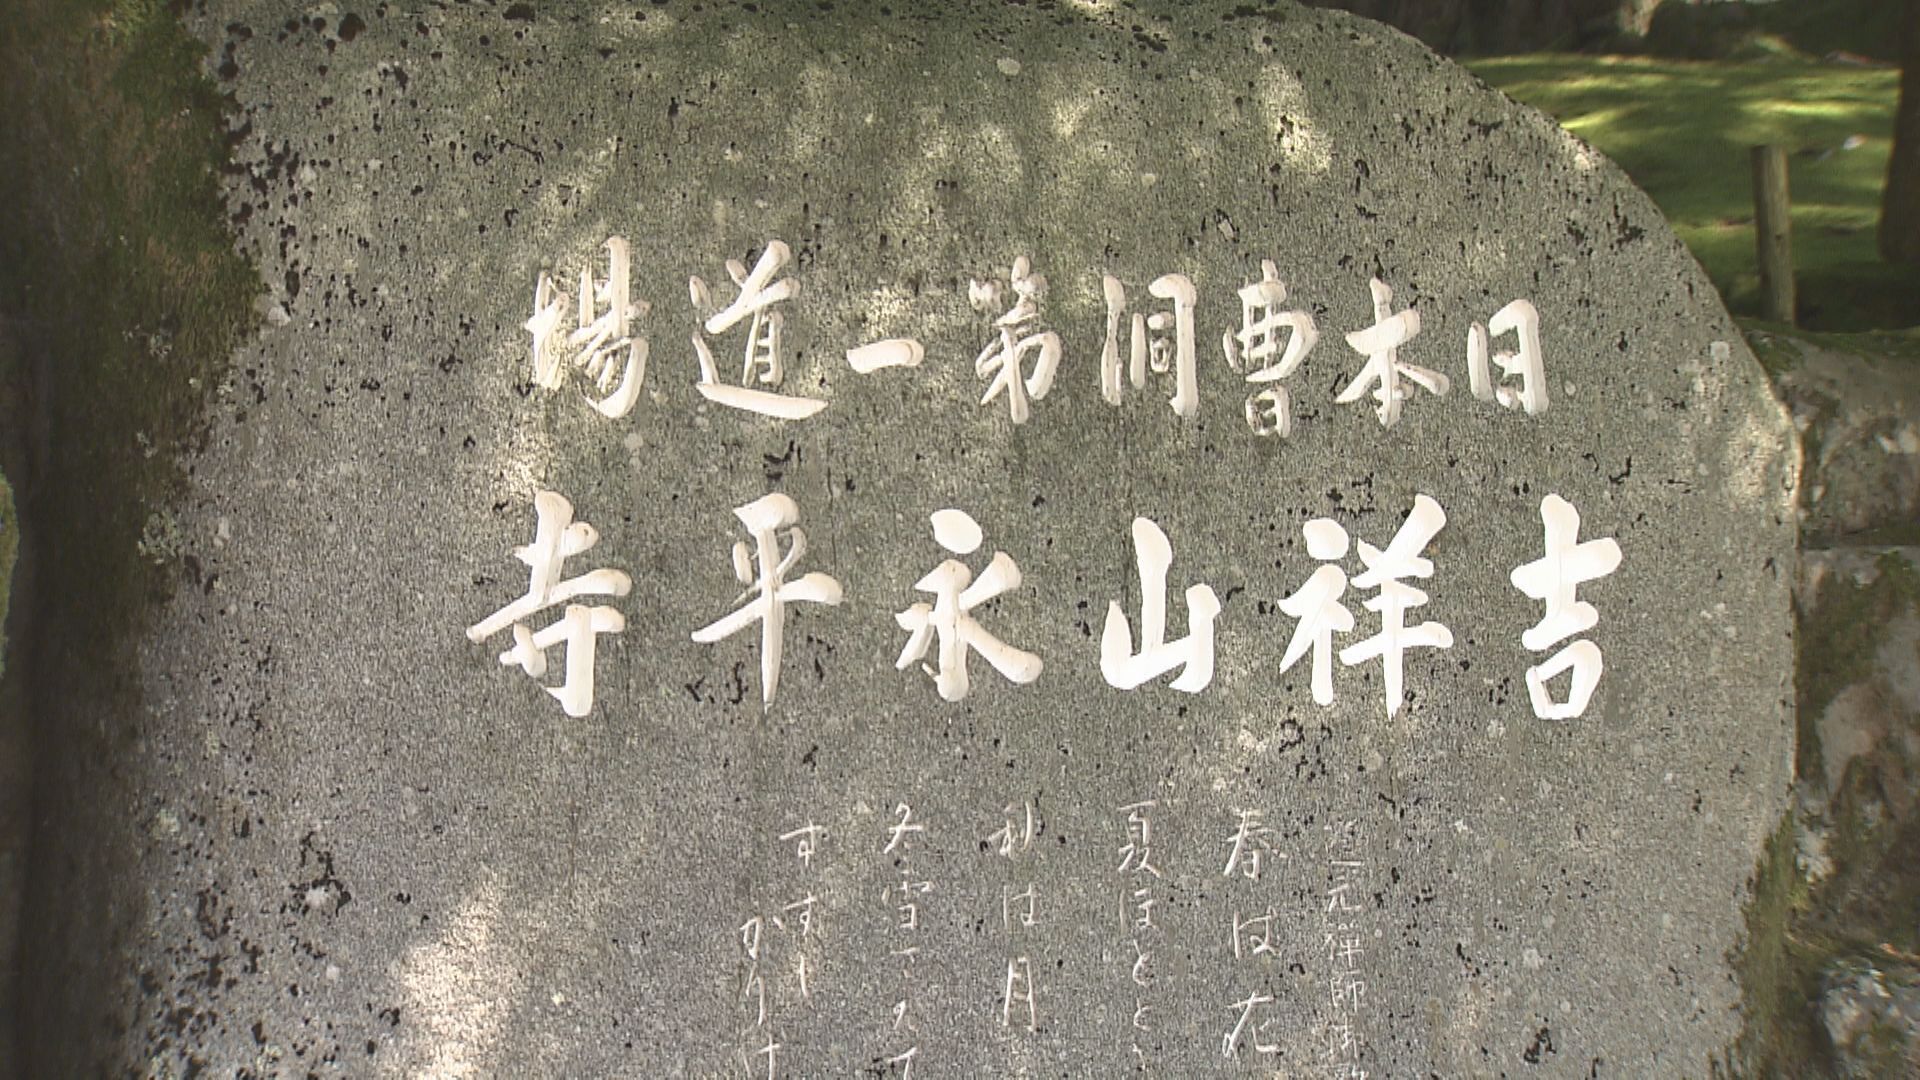 日本曹洞第一道場
吉祥山永平寺
道元禅師御歌
春は花
夏ほとと
秋は月
冬雪さえて
すずし
かりけ